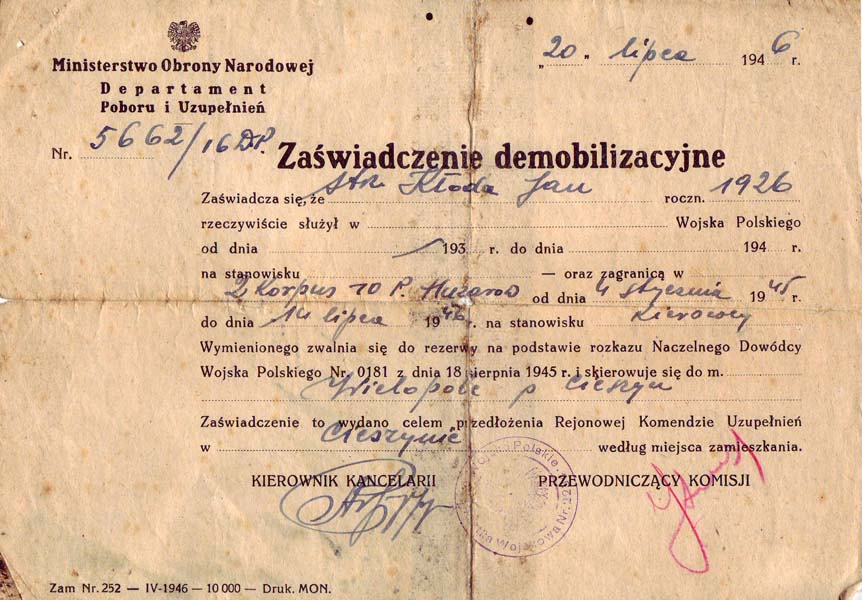 „20” lipca 1946 r.
Ministerstwo Obrony Narodowej
Departament
Poboru i Uzupełnień
Nr. 5662/16 D.P.
Zaświadczenie demobilizacyjne
Zaświadcza się, że str. Kłoda Jan roczn. 1926
rzeczywiście służył w Wojska Polskiego
od dnia 193 r. do dnia 194 r.
na stanowisku — oraz zagranicą w
2 Korpus 10 P. Huzarów od dnia 4 stycznia 1945 r.
do dnia 14 lipca 1946 r. na stanowisku kierowcy
Wymienionego zwalnia się do rezerwy na podstawie rozkazu Naczelnego Dowódcy
Wojska Polskiego Nr. 0181 z dnia 18 sierpnia 1945 r. i skierowuje się do m.
Wielopole p Cieszyn
Zaświadczenie to wydano celem przedłożenia Rejonowej Komendzie Uzupełnień
w Cieszynie według miejsca zamieszkania.
KIEROWNIK KANCELARII PRZEWODNICZĄCY KOMISJI
Polskie
Wojskowa Nr. 22
Zam Nr. 252 — IV-1946 — 10 000 — Druk. MON.